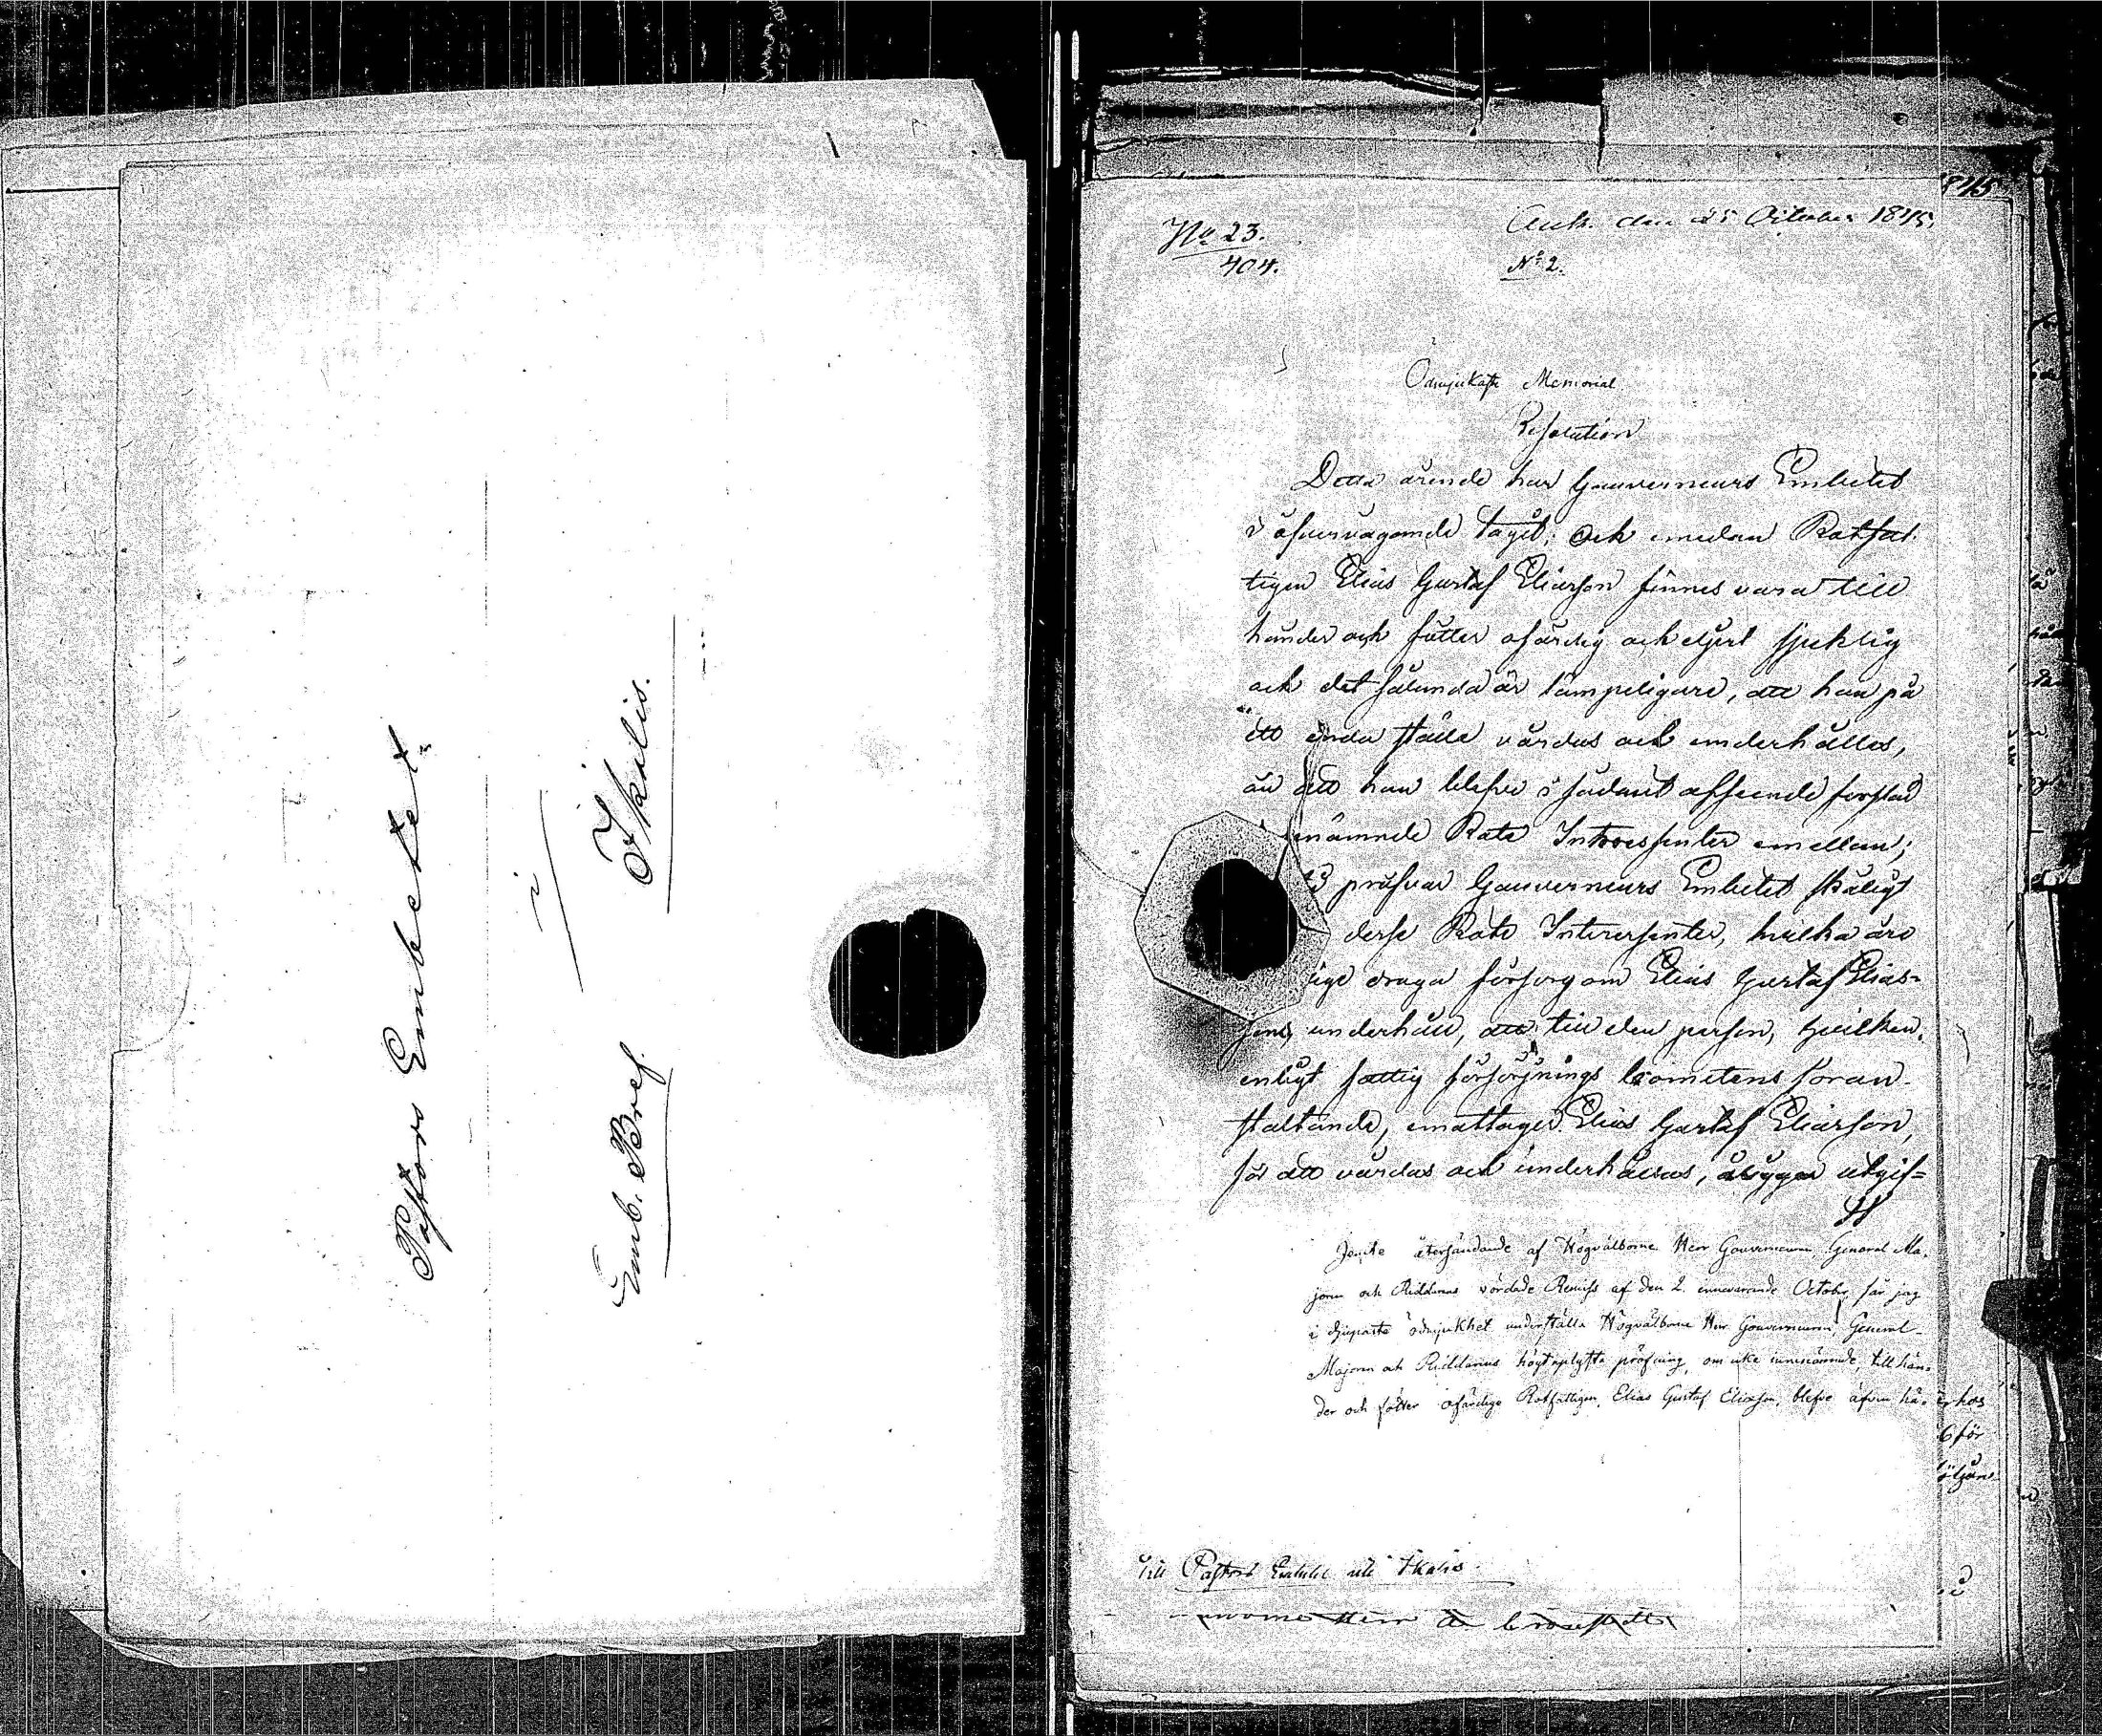 Pastors Embetet
i
Ikalis.
Emb. Bref.
1845
No 23.
404.
Ank. den 25 October 1845.
No 2.
Ödmjukaste Memorial
Resolution
Detta ärende har Gouverneurs Embetet
i öfvervägande tagit; och emedan Rotfat-
tigen Elias Gustaf Eliasson finnes vara till
händer och fötter ofärdig och eljest sjuklig
och det sålunda är lämpeligare, att han på
ett enda ställe vårdas och underhålles,
än att han blefve i sådant afseende
nämnde Rote Intressenter emellan;
pröfvar Gouverneurs Embetet skäligt
desse Rote Intressenter, hvilka äro
draga försorg om Elias Gustaf Elias-
sons underhåll, att till den person, hvilken,
enligt fattig försörjnings Comitens föran-
staltande, emottager Elias Gustaf Eliasson,
för att vårdas och underhållas, utgif-
Jemte återsändande af Högvälborne Herr Gouverneurn General Ma-
jorn och Riddarens vördade Remiss af den 2. innevarande October får jag
i djupaste ödmjukhet underställa Högvälborne Herr Gouverneurn General-
Majorn och Riddarens högtuplysta pröfning, om icke innenämnde, till hän-
der och fötter ofärdige Rotfattigen, Elias Gustaf Eliasson, blefve äfven hä-
hos
för
Till Pastors Embetet uti Ikalis